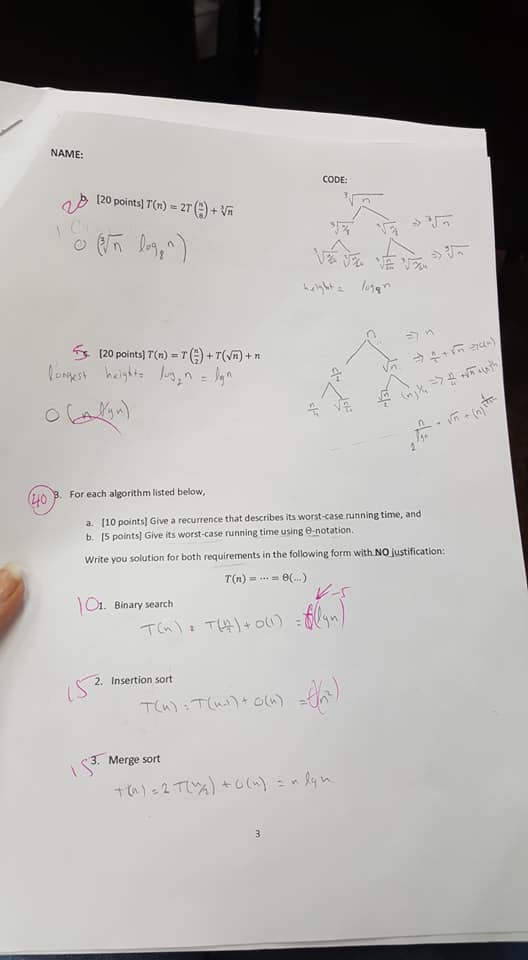 NAME:
CODE:
20 b. [20 points] T(n) = 2T(n/8) + ∛n
O(∛n log₈n)
∛n
∛n/8 ∛n/8 => ∛n
∛n/64 ∛n/64 ∛n/64 ∛n/64 => ∛n
height = log₈n
5 c. [20 points] T(n) = T(n/2) + T(√n) + n
longest height = log₂n = lgn
O(n lgn)
n => n
n/2 √n => n/2 + √n => O(n)
n/4 √n/2 √n/2 (n)^¼
40 3. For each algorithm listed below,
a. [10 points] Give a recurrence that describes its worst-case running time, and
b. [5 points] Give its worst-case running time using Θ-notation.
Write you solution for both requirements in the following form with NO justification:
T(n) = ⋯ = Θ(...)
-5
10 1. Binary search
T(n) = T(n/2) + O(1) = θ(lgn)
15 2. Insertion sort
T(n) = T(n-1) + O(n) = (n²)
15 3. Merge sort
T(n) = 2T(n/2) + O(n) = n lgn
3